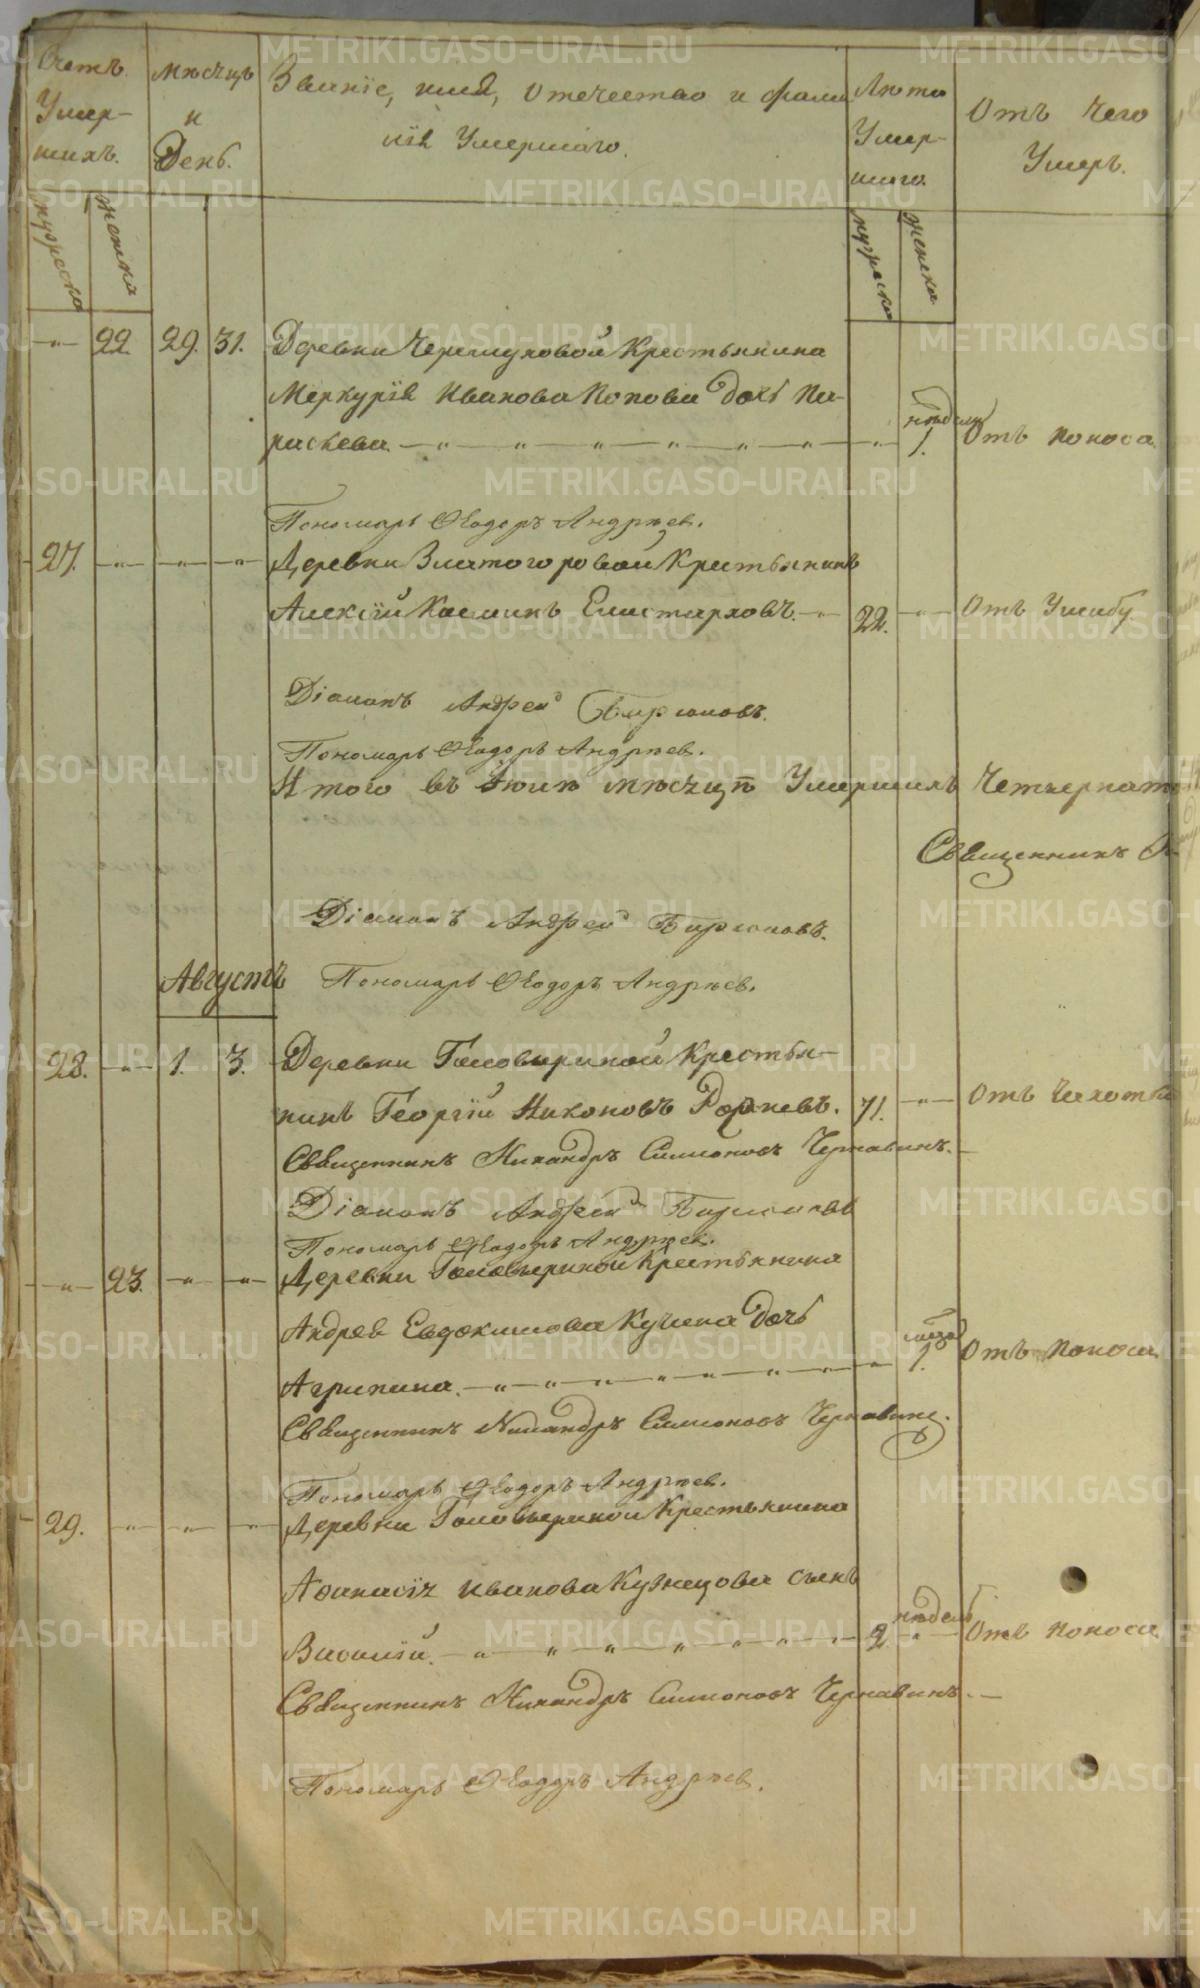 Счетъ Умер-
шихъ.
Мѣсяцъ
и
День.
Званіе, имя, Отечество и фами
лія Умершаго.
Лѣта
Умер-
шаго.
Отъ чего
Умеръ.
мужеска
женска
мужеска
женска
22. 29. 31. Деревни Черемуховой Крестьянина
Меркурія Иванова Попова дочь Па-
раскева. недѣли 1. Отъ поноса.
Пономарь Ѳеодоръ Андрѣев.
27. Деревни Златогоровой Крестьянинъ
Алексій Косминъ Елистарховъ. 22. Отъ Ушибу
Діаконъ Андрей Бирюковъ.
Пономарь Ѳеодоръ Андрѣев.
Итого въ Іюлѣ мѣсяцѣ Умершихъ Четырнат
Священникъ
Діаконъ Андрей Бирюковъ.
Августъ Пономарь Ѳеодоръ Андрѣев.
28. 1. 3. Деревни Головыриной Крестья-
нинъ Георгій Никоновъ 71. Отъ Чахотки
Священникъ Никандръ Симионовъ Чернавинъ.
Діаконъ Андрей Бирюковъ
Пономарь Ѳеодоръ Андрѣев.
23. Деревни Головыриной Крестьянина
Андрея Евдокимова Кучина дочь
Агрипина. 1. Отъ поноса.
Священникъ Никандръ Симионовъ Чернавинъ.
Пономарь Ѳеодоръ Андрѣев.
29. Деревни Головыриной Крестьянина
Аѳанасія Иванова Кузнецова сынъ
Василій. недѣль Отъ поноса.
Священникъ Никандръ Симионовъ Чернавинъ.
Пономарь Ѳеодоръ Андрѣев.
METRIKI.GASO-URAL.RU